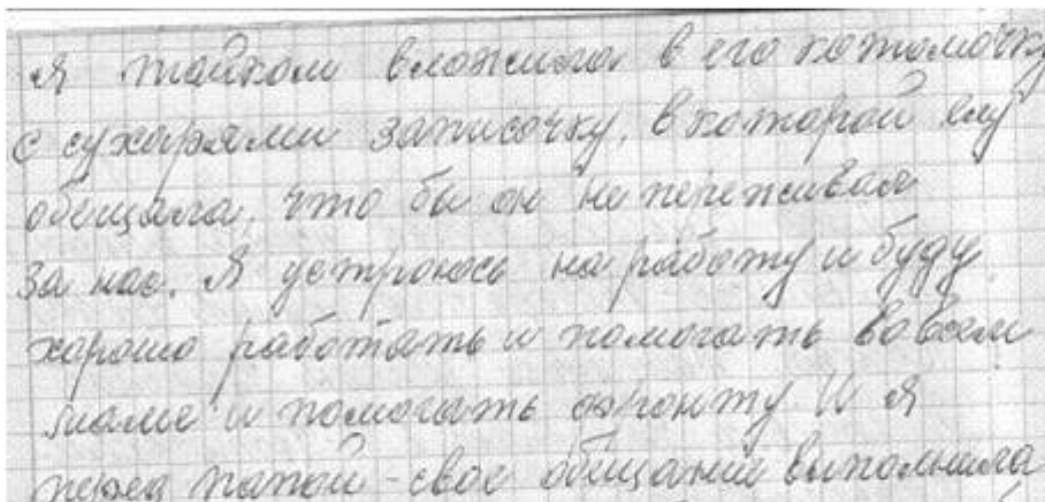 я тайком вложила в его котомочку
с сухарями записочку, в которой ему
обещала, что бы он не переживал
за нас. Я устроюсь на работу и буду
хорошо работать и помогать во всем
маме и помогать фронту И я
перед папой - свое обещание выполнила